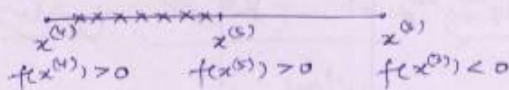 x⁽⁴⁾ x⁽⁵⁾ x⁽³⁾
f(x⁽⁴⁾) > 0 f(x⁽⁵⁾) > 0 f(x⁽³⁾) < 0